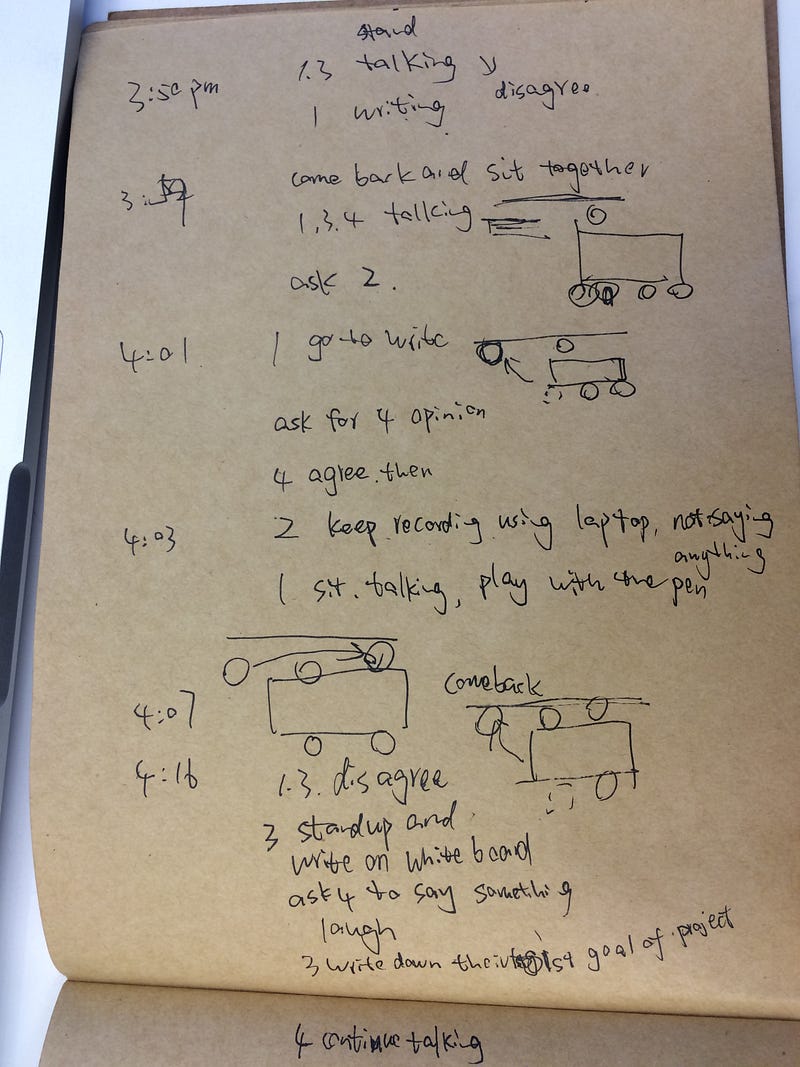 stand
3:50 pm 1.3 talking disagree
1 writing
come back and sit together
1,3.4 talking
ask 2.
4:01 1 go to write
ask for 4 opinion
4 agree. then
4:03 2 keep recording using laptop, not saying anything
1 sit. talking, play with the pen
4:07 Come back
4:16 1.3. disagree
3 stand up and
write on white board
ask 4 to say something
laugh
3 write down their 1st goal of project
4 continue talking